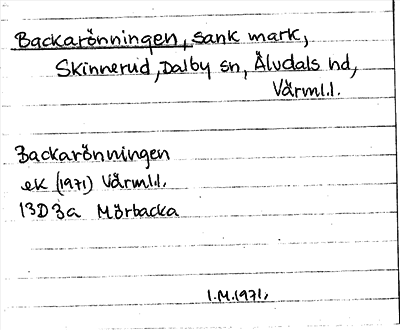 Backarönningen, sank mark,
Skinnerud, Dalby sn, Älvdals hd,
Värml.l.
Backarönningen
ek (1971) Värml.l.
13D3a Mörbacka
I.M.1971.